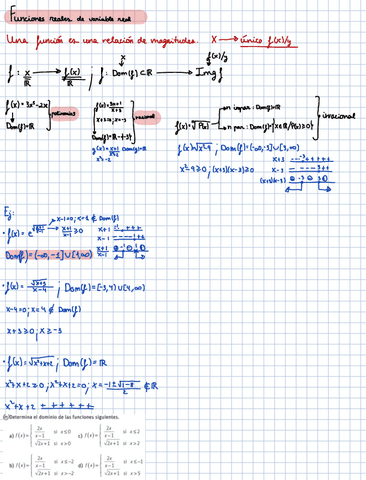 Funciones reales de variable real
Una función es una relación de magnitudes. X → único f(x)/y
f: x → f(x) ; f: Dom(f) ⊂ ℝ → Img f
ℝ ℝ
x f(x)/y
f(x) = 3x²-2x
Dom(f) = ℝ
polinomios
x+3=0; x=-3
Dom(f) = ℝ-{-3}
racional
Dom(f)=ℝ
x²-2
f(x) = ⁿ√P(x)
n impar: Dom(f)=ℝ
n par: Dom(f)={x∈ℝ/P(x)≥0}
irracional
f(x)=√x²-9 ; Dom(f)=(-∞,-3]∪[3,∞)
x²-9≥0; (x+3)(x-3)≥0
x+3
x-3
(x+3)(x-3)
Ej:
x-1=0; x=1 ∉ Dom(f)
x+1/x-1 ≥0
x+1
x-1
x+1/x-1
Dom(f) = (-∞,-1]∪(1,∞)
· f(x) = √x+3/x-4 ; Dom(f)=[-3,4)∪(4,∞)
x-4=0; x=4 ∉ Dom(f)
x+3≥0; x≥-3
· f(x) = √x²+x+2 ; Dom(f)=ℝ
x²+x+2≥0; x²+x+2=0; x=-1±√1-8/2 ∉ ℝ
x²+x+2 + + + + + +
Determina el dominio de las funciones siguientes.
a) f(x)= { 2x/x-1 si x≤0
√2x+1 si x>0
c) f(x)= { 2x/x-1 si x≤2
√2x+1 si x>2
b) f(x)= { 2x/x-1 si x≤-2
√2x+1 si x>-2
d) f(x)= { 2x/x-1 si x≤-1
√2x+1 si x>5